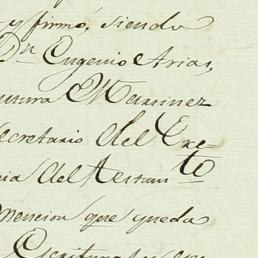 y firmó, siendo
Dn Eugenio Arias,
Martinez
Secretario del Exc-
del Testamto
mencion que queda